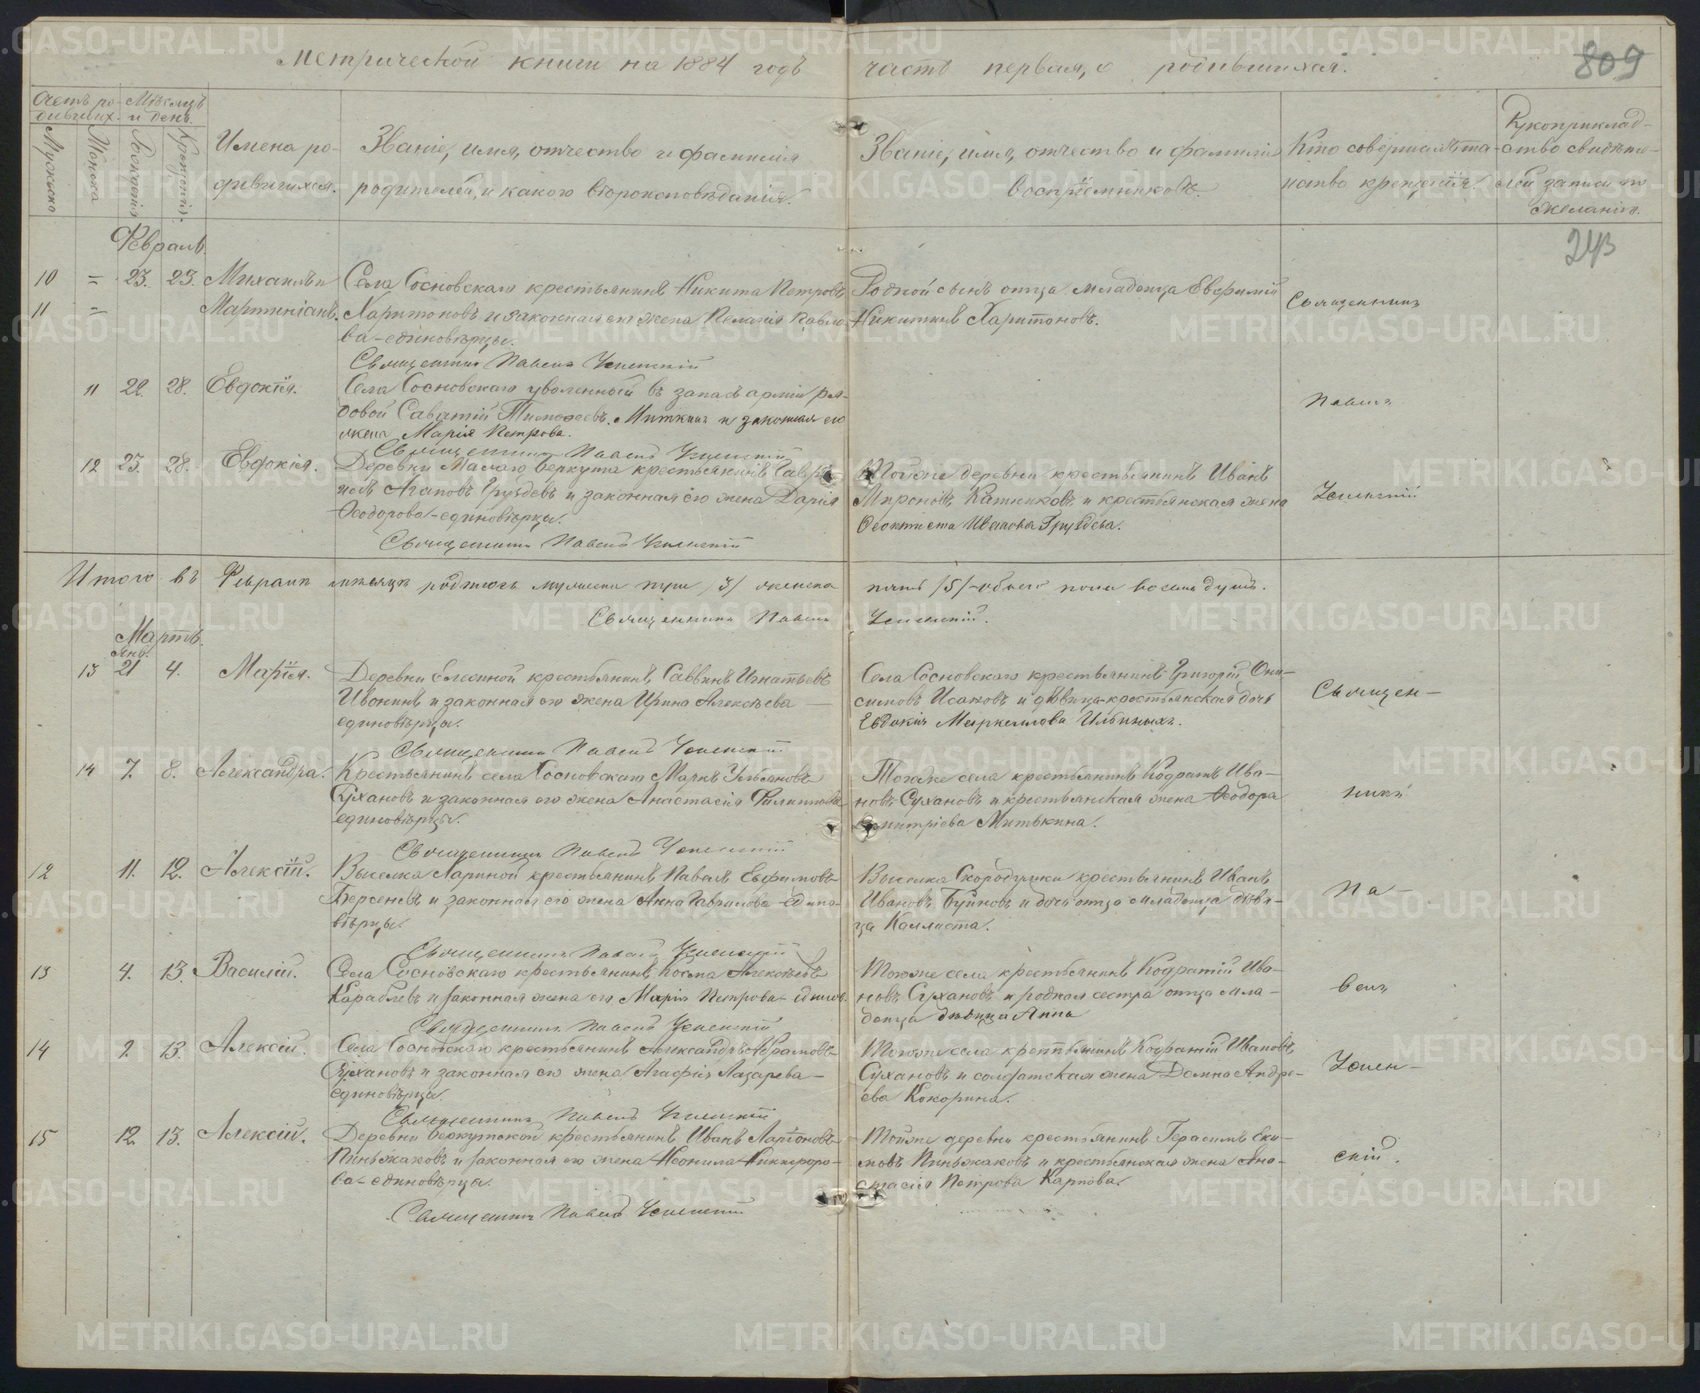 метрической книги на 1884 годъ
часть первая, о родившихся.
809
Счетъ ро-
дивших.
Мѣсяцъ
и день.
Мужеска
Женска
Рожденія
Крещенія.
Имена ро-
дившихся.
Званіе, имя, отчество и фамилія
родителей, и какого вѣроисповѣданія.
Званіе, имя, отчество и фамилія
Воспріемниковъ.
Кто совершалъ та-
инство крещенія.
Рукоприклад-
ство свидѣте-
лей записи по
желанію.
243
Февраль.
10 = 23. 23. Михаилъ и
11 = Мартиніанъ.
Села Сосновскаго крестьянинъ Никита Петровъ
Харитоновъ и законная его жена Пелагія Павло-
ва - единовѣрцы.
Священникъ Павелъ Успенскій
Родной сынъ отца младенца Евфимій
Никитинъ Харитоновъ.
Священникъ
11 22. 28. Евдокія.
Села Сосновскаго уволенный въ запасъ арміи ря-
довой Саватій Тимофеевъ Миткинъ и законная его
жена Марія Петрова.
Священникъ Павелъ Успенскій
Павелъ
12 25. 28. Евдокія.
Деревни Малаго Беркута крестьянинъ Гаврі-
илъ Агаповъ Груздевъ и законная его жена Дарія
Ѳеодорова - единовѣрцы.
Священникъ Павелъ Успенскій
Тойже деревни крестьянинъ Иванъ
Мироновъ Катниковъ и крестьянская жена
Ѳеоктиста Иванова Груздева.
Успенскій
Итого въ Февралѣ мѣсяцѣ родилось мужеска три /3/ женска
пять /5/ - обоего пола восемь душъ.
Священникъ Павелъ
Успенскій.
Мартъ.
Янв.
13 21 4. Марія.
Деревни крестьянинъ Саввинъ Игнатьевъ
Ивонинъ и законная его жена Ирина Алексѣева
единовѣрцы.
Священникъ Павелъ Успенскій
Села Сосновскаго крестьянинъ Григорій Они-
симовъ Исаковъ и дѣвица крестьянская дочь
Евдокія Маркеллова Ильиныхъ.
Священ-
14 7. 8. Александра.
Крестьянинъ села Сосновскаго Маркъ Ульяновъ
Сухановъ и законная его жена Анастасія Филиппова
единовѣрцы.
Священникъ Павелъ Успенскій
Тогоже села крестьянинъ Кодратъ Ива-
новъ Сухановъ и крестьянская жена Ѳеодора
Димитріева Митькина.
никъ
12 11. 12. Алексій.
Выселка Лариной крестьянинъ Павелъ Евфимовъ
Берсеневъ и законная его жена Анна Гаврилова едино-
вѣрцы.
Священникъ Павелъ Успенскій
Выселка Скородумки крестьянинъ Иванъ
Ивановъ Буйновъ и дочь отца младенца дѣви-
ца Каллиста.
Па-
13 4. 13. Василій.
Села Сосновскаго крестьянинъ Косма Алексѣевъ
Караблевъ и законная жена его Марія Петрова - единов.
Священникъ Павелъ Успенскій
Тогоже села крестьянинъ Кодратій Ива-
новъ Сухановъ и родная сестра отца мла-
денца дѣвица Анна
велъ
14 9. 13. Алексій.
Села Сосновскаго крестьянинъ Александръ Абрамовъ
Сухановъ и законная его жена Агафія Лазарева -
единовѣрцы.
Священникъ Павелъ Успенскій
Тогоже села крестьянинъ Кодратій Ивановъ
Сухановъ и солдатская жена Домна Андре-
ева Кокорина.
Успен-
15 12. 13. Алексій.
Деревни Беркутской крестьянинъ Иванъ Ларіоновъ
Пиньжаковъ и законная его жена Неонила Никифоро-
ва - единовѣрцы.
Священникъ Павелъ Успенскій
Тойже деревни крестьянинъ Герасимъ Еки-
мовъ Пиньжаковъ и крестьянская жена Ана-
стасія Петрова Карпова.
скій.